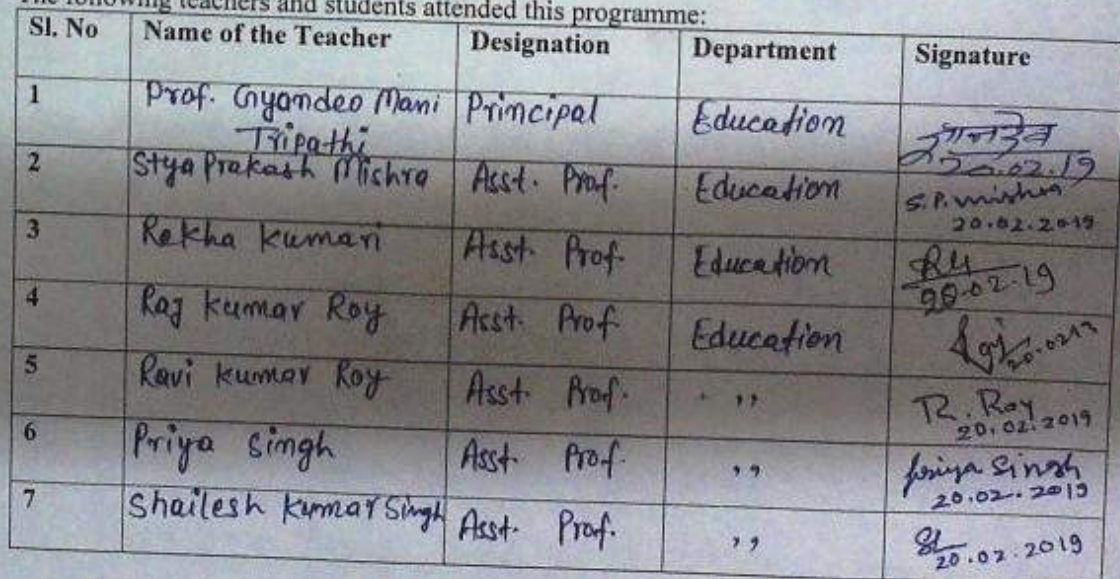 The following teachers and students attended this programme:
Sl. No Name of the Teacher Designation Department Signature
1 Prof. Gyandeo Mani Tripathi Principal Education ज्ञानदेव 20.02.19
2 Stya Prakash Mishra Asst. Prof. Education S.P. mishra 20.02.2019
3 Rekha kumari Asst. Prof. Education 20.02.19
4 Raj kumar Roy Asst. Prof Education Raj
5 Ravi kumar Roy Asst. Prof. ,, R. Roy 20.02.2019
6 Priya Singh Asst. Prof. ,, priya Singh 20.02.2019
7 Shailesh kumar Singh Asst. Prof. ,, 20.02.2019